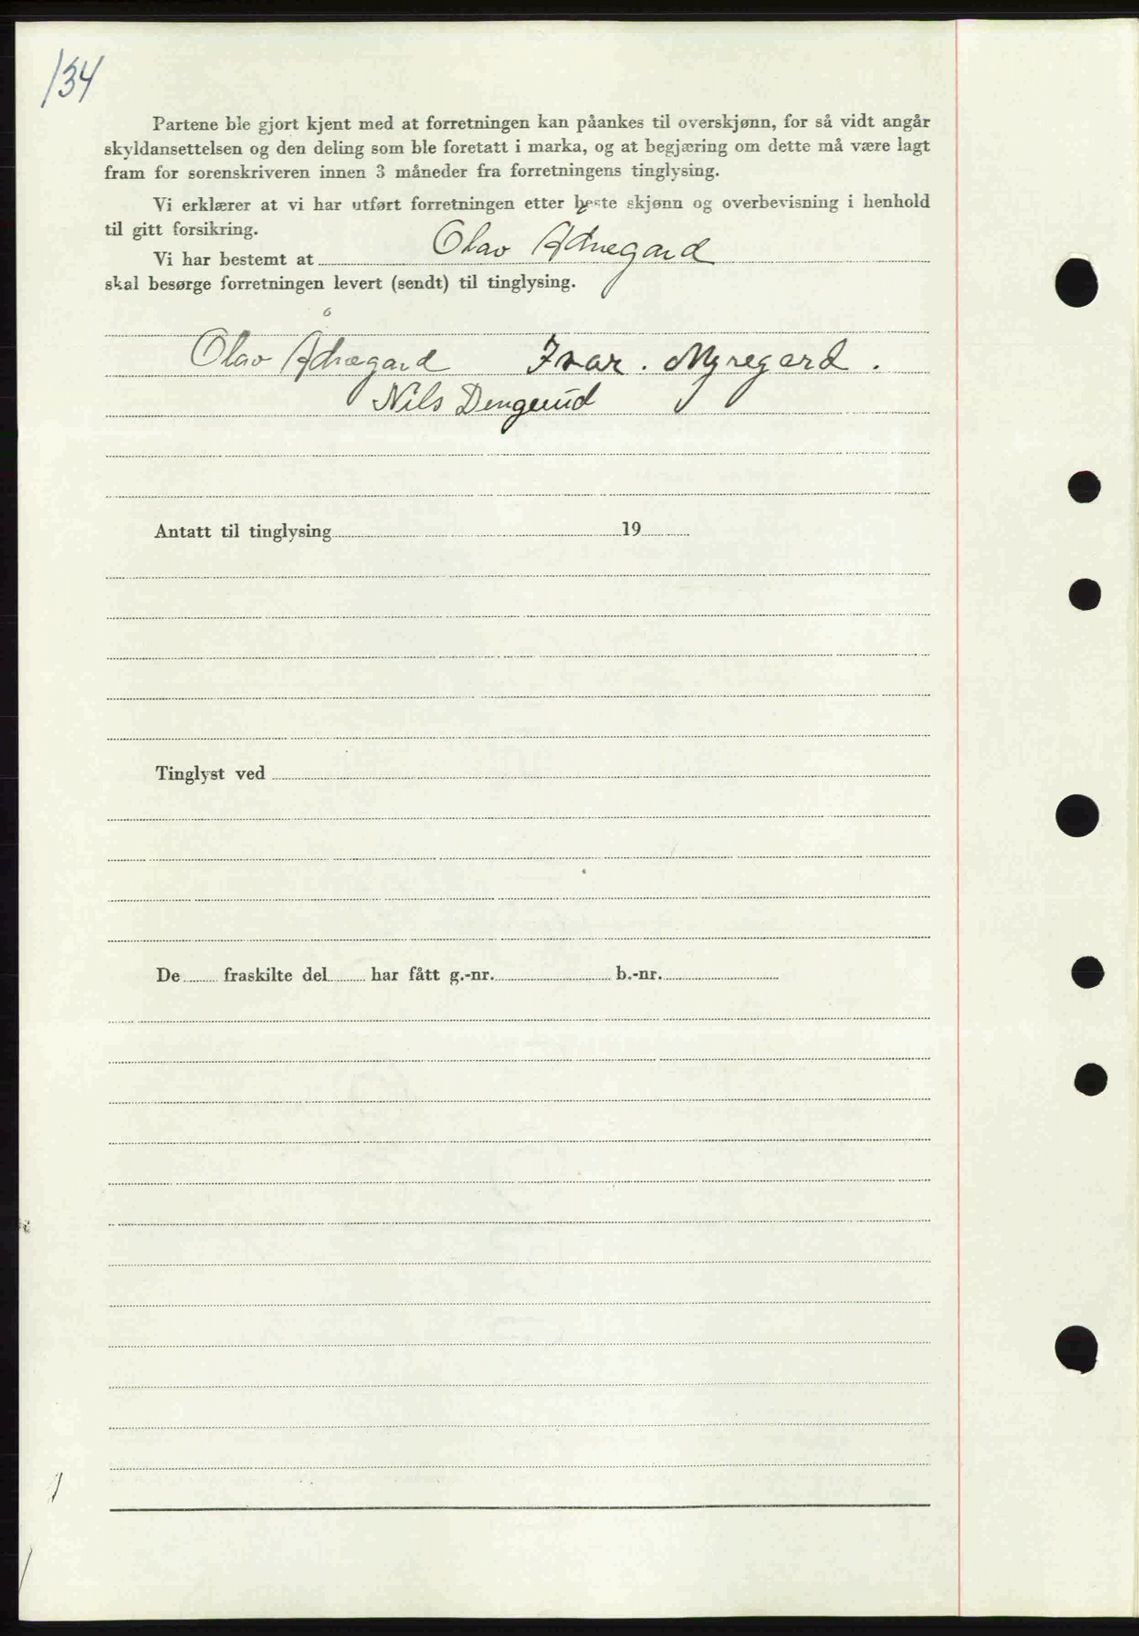 134
Partene ble gjort kjent med at forretningen kan påankes til overskjønn, for så vidt angår
skyldansettelsen og den deling som ble foretatt i marka, og at begjæring om dette må være lagt
fram for sorenskriveren innen 3 måneder fra forretningens tinglysing.
Vi erklærer at vi har utført forretningen etter beste skjønn og overbevisning i henhold
til gitt forsikring.
Vi har bestemt at Olav Ådnegard
skal besørge forretningen levert (sendt) til tinglysing.
Olav Ådnegard Ivar. Myregard.
Nils Dengerud
Antatt til tinglysing 19
Tinglyst ved
De fraskilte del har fått g.-nr. b.-nr.